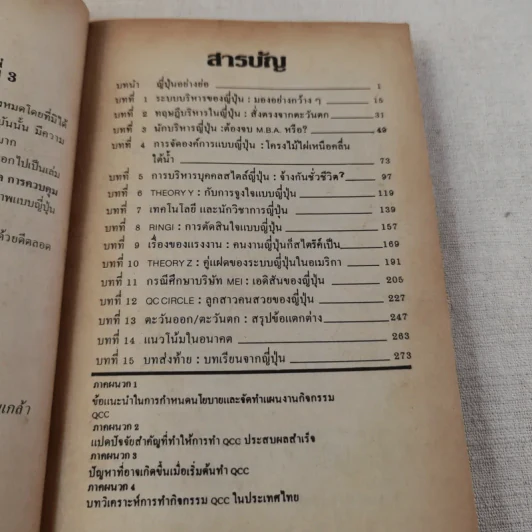 ที่ 3
หมดโดยที่มิได้
บันนั้น มีความ
มาก
อกไปเป็นเล่ม
ล การควบคุม
ภาพแบบญี่ปุ่น
ด้วยดีตลอด
เกล้า
สารบัญ
บทนำ ญี่ปุ่นอย่างย่อ 1
บทที่ 1 ระบบบริหารของญี่ปุ่น : มองอย่างกว้าง ๆ 15
บทที่ 2 ทฤษฎีบริหารในญี่ปุ่น : สั่งตรงจากตะวันตก 31
บทที่ 3 นักบริหารญี่ปุ่น :ต้องจบ M.B.A. หรือ? 49
บทที่ 4 การจัดองค์การแบบญี่ปุ่น : โครงไม้ไผ่เหนือคลื่น
ใต้น้ำ 73
บทที่ 5 การบริหารบุคคลสไตล์ญี่ปุ่น : จ้างกันชั่วชีวิต? 97
บทที่ 6 THEORY Y : กับการจูงใจแบบญี่ปุ่น 119
บทที่ 7 เทคโนโลยี และนักวิชาการญี่ปุ่น 139
บทที่ 8 RINGI : การตัดสินใจแบบญี่ปุ่น 157
บทที่ 9 เรื่องของแรงงาน : คนงานญี่ปุ่นก็สไตร๊ค์เป็น 169
บทที่ 10 THEORY Z : คู่แฝดของระบบญี่ปุ่นในอเมริกา 191
บทที่ 11 กรณีศึกษาบริษัท MEI : เอดิสันของญี่ปุ่น 205
บทที่ 12 QC CIRCLE : ลูกสาวคนสวยของญี่ปุ่น 227
บทที่ 13 ตะวันออก/ตะวันตก : สรุปข้อแตกต่าง 247
บทที่ 14 แนวโน้มในอนาคต 263
บทที่ 15 บทส่งท้าย : บทเรียนจากญี่ปุ่น 273
ภาคผนวก 1
ข้อแนะนำในการกำหนดนโยบายและจัดทำแผนงานกิจกรรม
QCC
ภาคผนวก 2
แปดปัจจัยสำคัญที่ทำให้การทำ QCC ประสบผลสำเร็จ
ภาคผนวก 3
ปัญหาที่อาจเกิดขึ้นเมื่อเริ่มต้นทำ QCC
ภาคผนวก 4
บทวิเคราะห์การทำกิจกรรม QCC ในประเทศไทย